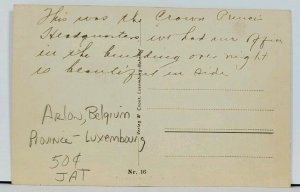 This was the Crown Princ
Headquarters we had our office
in the building over night
is beautiful in side
Arlon, Belgium
Province - Luxembourg
50¢
JAT
Nr. 16